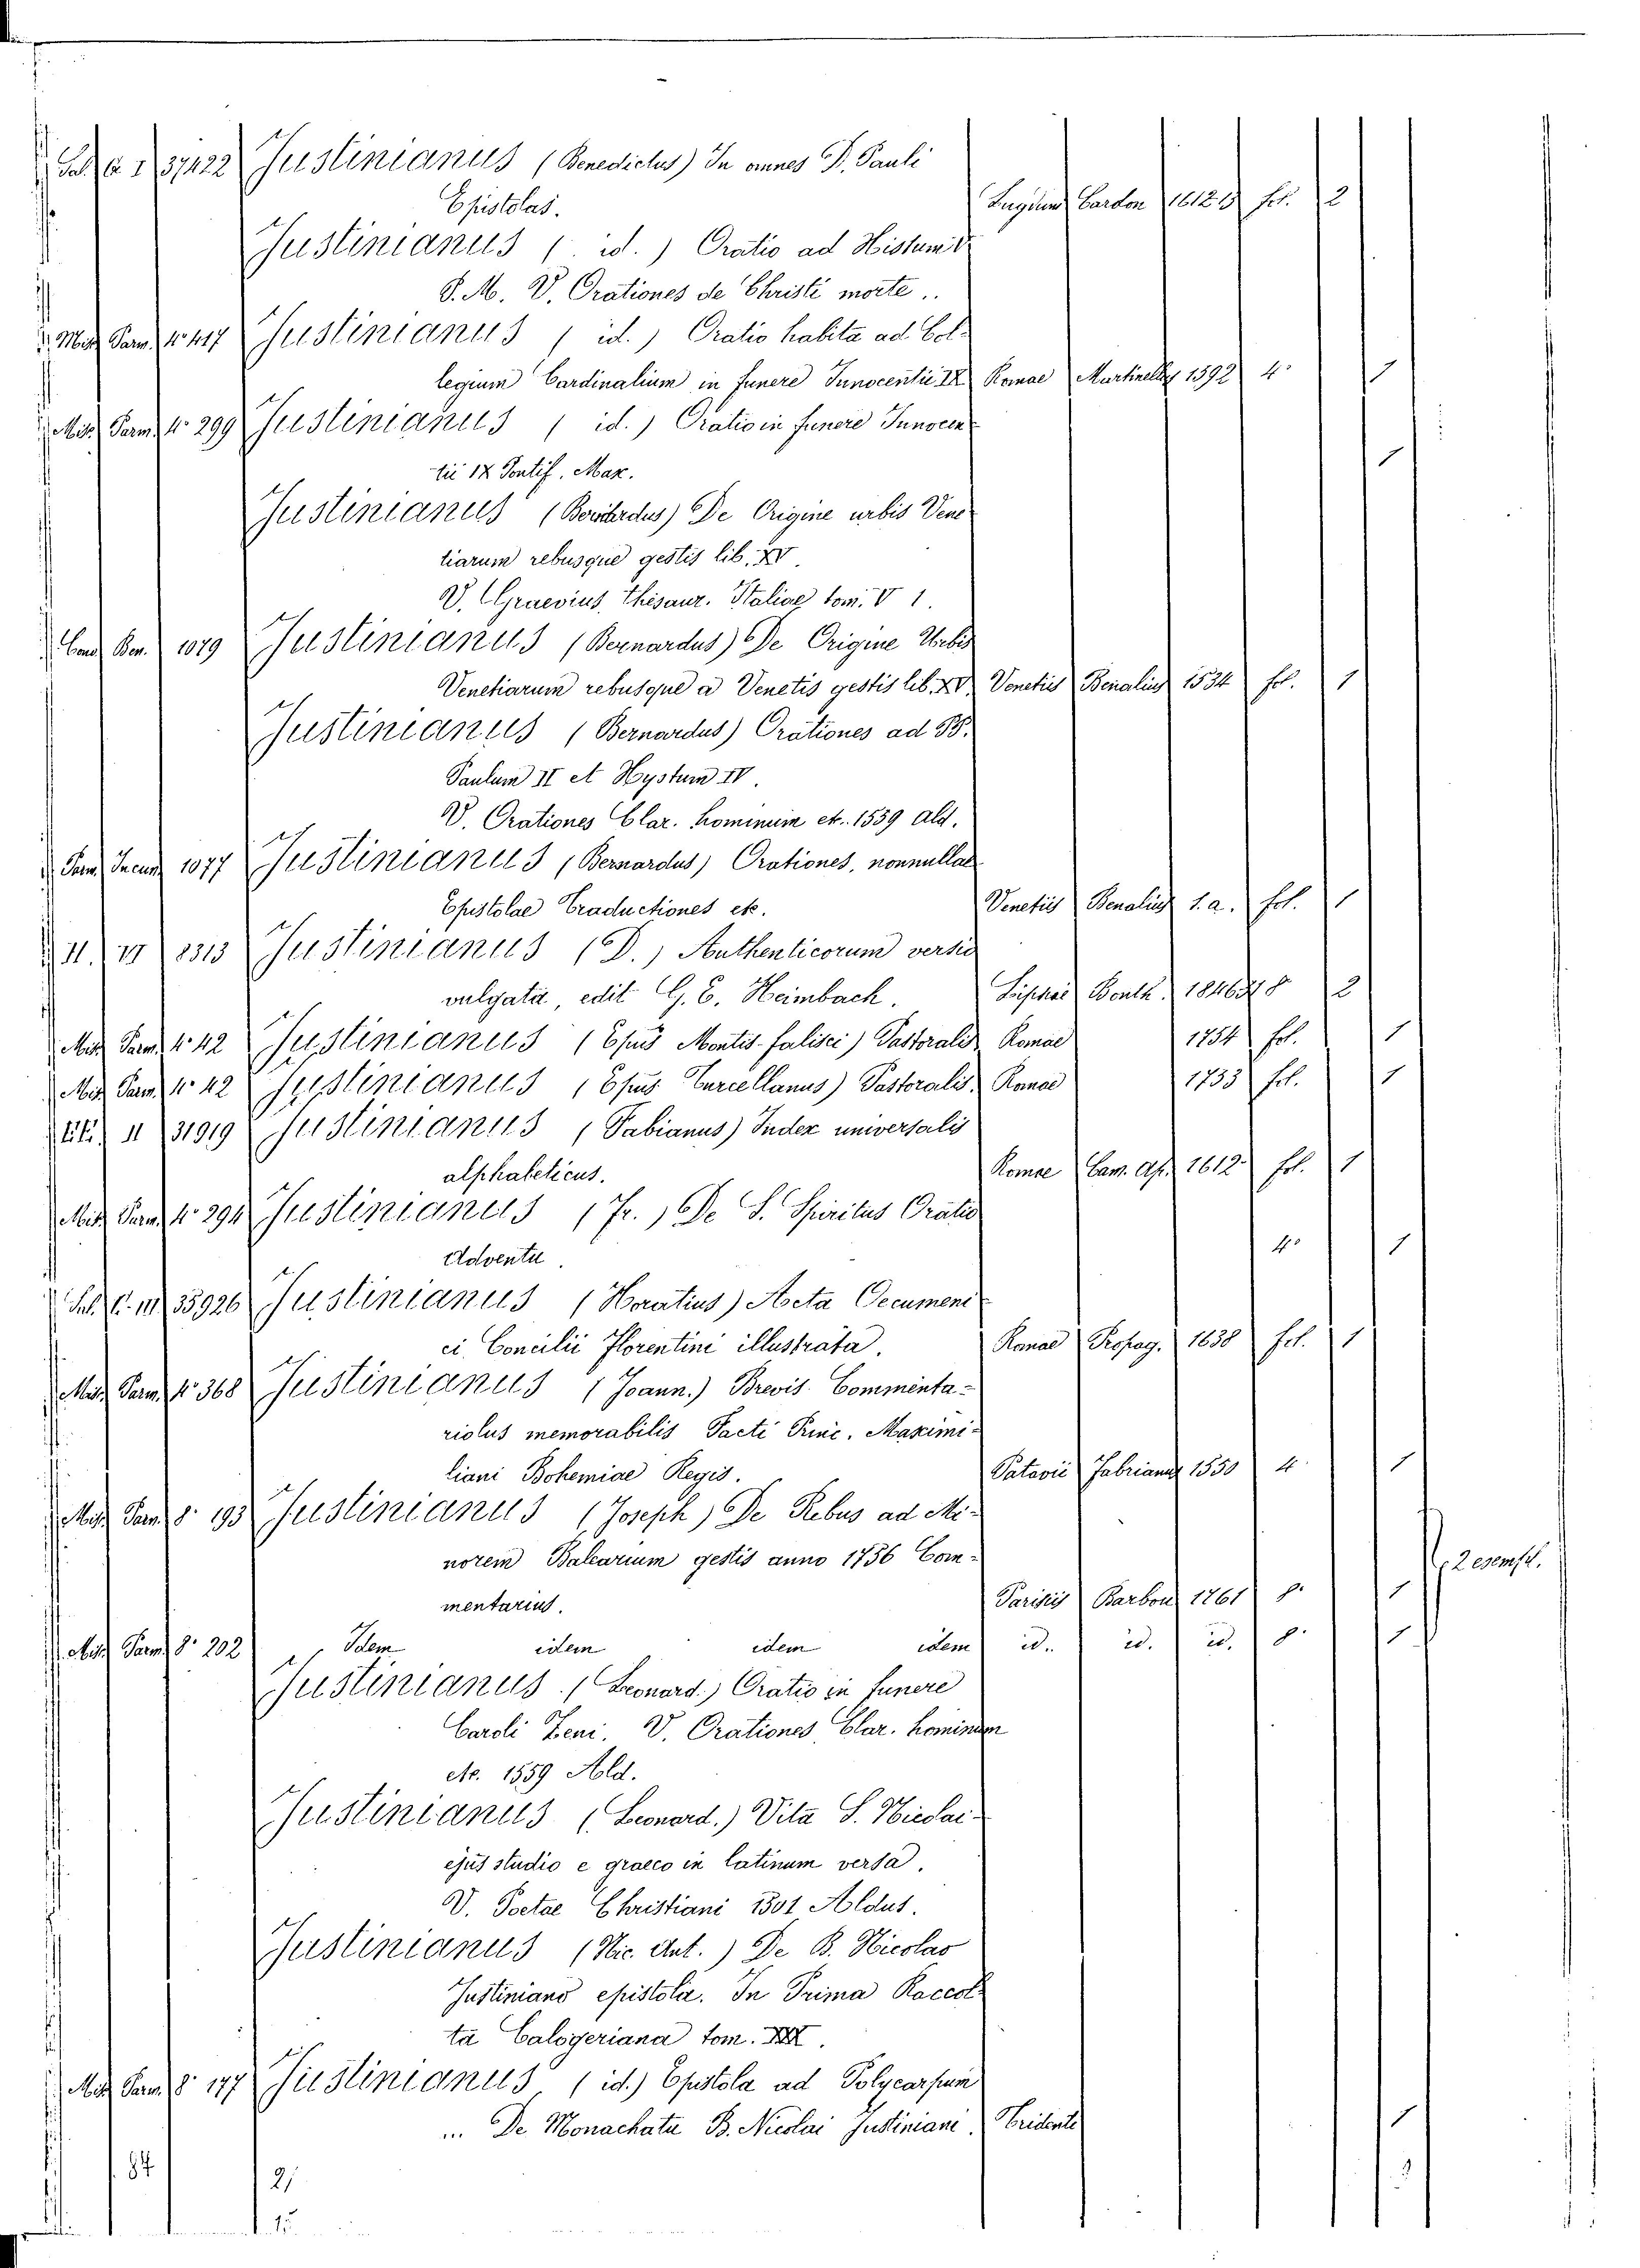 Sal. a I 37422 Justinianus (Benedictus) In omnes D. Pauli
Epistolas. Lugduni Cardon 1612 13 fol. 2
Justinianus ( id. ) Oratio ad Histum V
P. M. V. Orationes de Christi morte..
Misc. Parm. 4º 417 Justinianus ( id. ) Oratio habita ad Col-
legium Cardinalium in funere Innocentii IX Romae Martinellus 1592 4º 1
Misc. Parm. 4º 299 Justinianus ( id. ) Oratio in funere Innocen
tii IX Pontif. Max. 1
Justinianus De Origine urbis Vene
tiarum rebusque gestis lib. XV.
V. Graevius, Thesaur. Italiae tom. V 1.
Cand. Ben. 1079 Justinianus (Bernardus) De Origine Urbis
Venetiarum rebusque a Venetis gestis lib. XV. Venetiis Benalius 1534 fol. 1
Justinianus (Bernardus) Orationes ad PP.
Paulum II et Hystum IV.
V. Orationes Clar. hominum etc. 1559 Ald.
Parm. Incun. 1077 Justinianus (Bernardus) Orationes, nonnullae
Epistolae Traductiones etc. Venetiis Benalius s. a. fol. 1
H. VI 8313 Justinianus (D.) Authenticorum versio
vulgata, edit G. E. Heimbach. Lipsiae Bonth. 1846 8 2
Misc. Parm. 4º 42 Justinianus (Epus Montis-falisci) Pastoralis Romae 1754 fol. 1
Misc. Parm. 4º 42 Justinianus (Epus Turcellanus) Pastoralis, Romae 1733 fol. 1
II 31919 Justinianus (Fabianus) Index universalis
alphabeticus. Romae Cam. Ap. 1612 fol. 1
Misc. Parm. 4º 294 Justinianus (Fr.) De S. Spiritus Oratio
Adventu 4º 1
Sal. C. III 35926 Justinianus (Horatius) Acta Oecumeni
ci Concilii Florentini illustrata. Romae Propag. 1638 fol. 1
Misc. Parm. 4º 368 Justinianus (Joann.) Brevis Commenta-
riolus memorabilis Facti Princ. Maximi-
liani Bohemiae Regis. Patavii Fabrianus 1550 4 1
Misc. Parm. 8º 193 Justinianus (Joseph) De Rebus ad Mi-
norem Balearium gestis anno 1756 Com-
mentarius. Parisiis Barbou 1761 8º 1 2 esempl.
Misc. Parm. 8º 202 Idem idem idem idem id. id. id. 8º 1
Justinianus (Leonard.) Oratio in funere
Caroli Zeni. V. Orationes Clar. hominum
etc. 1559 Ald.
Justinianus (Leonard.) Vita S. Nicolai
ejus studio e graeco in latinum versa.
V. Poetae Christiani 1501 Aldus.
Justinianus (Nic. Ant.) De B. Nicolao
Justiniano epistola. In Prima Raccol
ta Calogeriana tom.
Misc. Parm. 8º 177 Justinianus (id.) Epistola ad Polycarpum
... De Monachatu B. Nicolai Justiniani. Tridenti 1
84 21 3
15